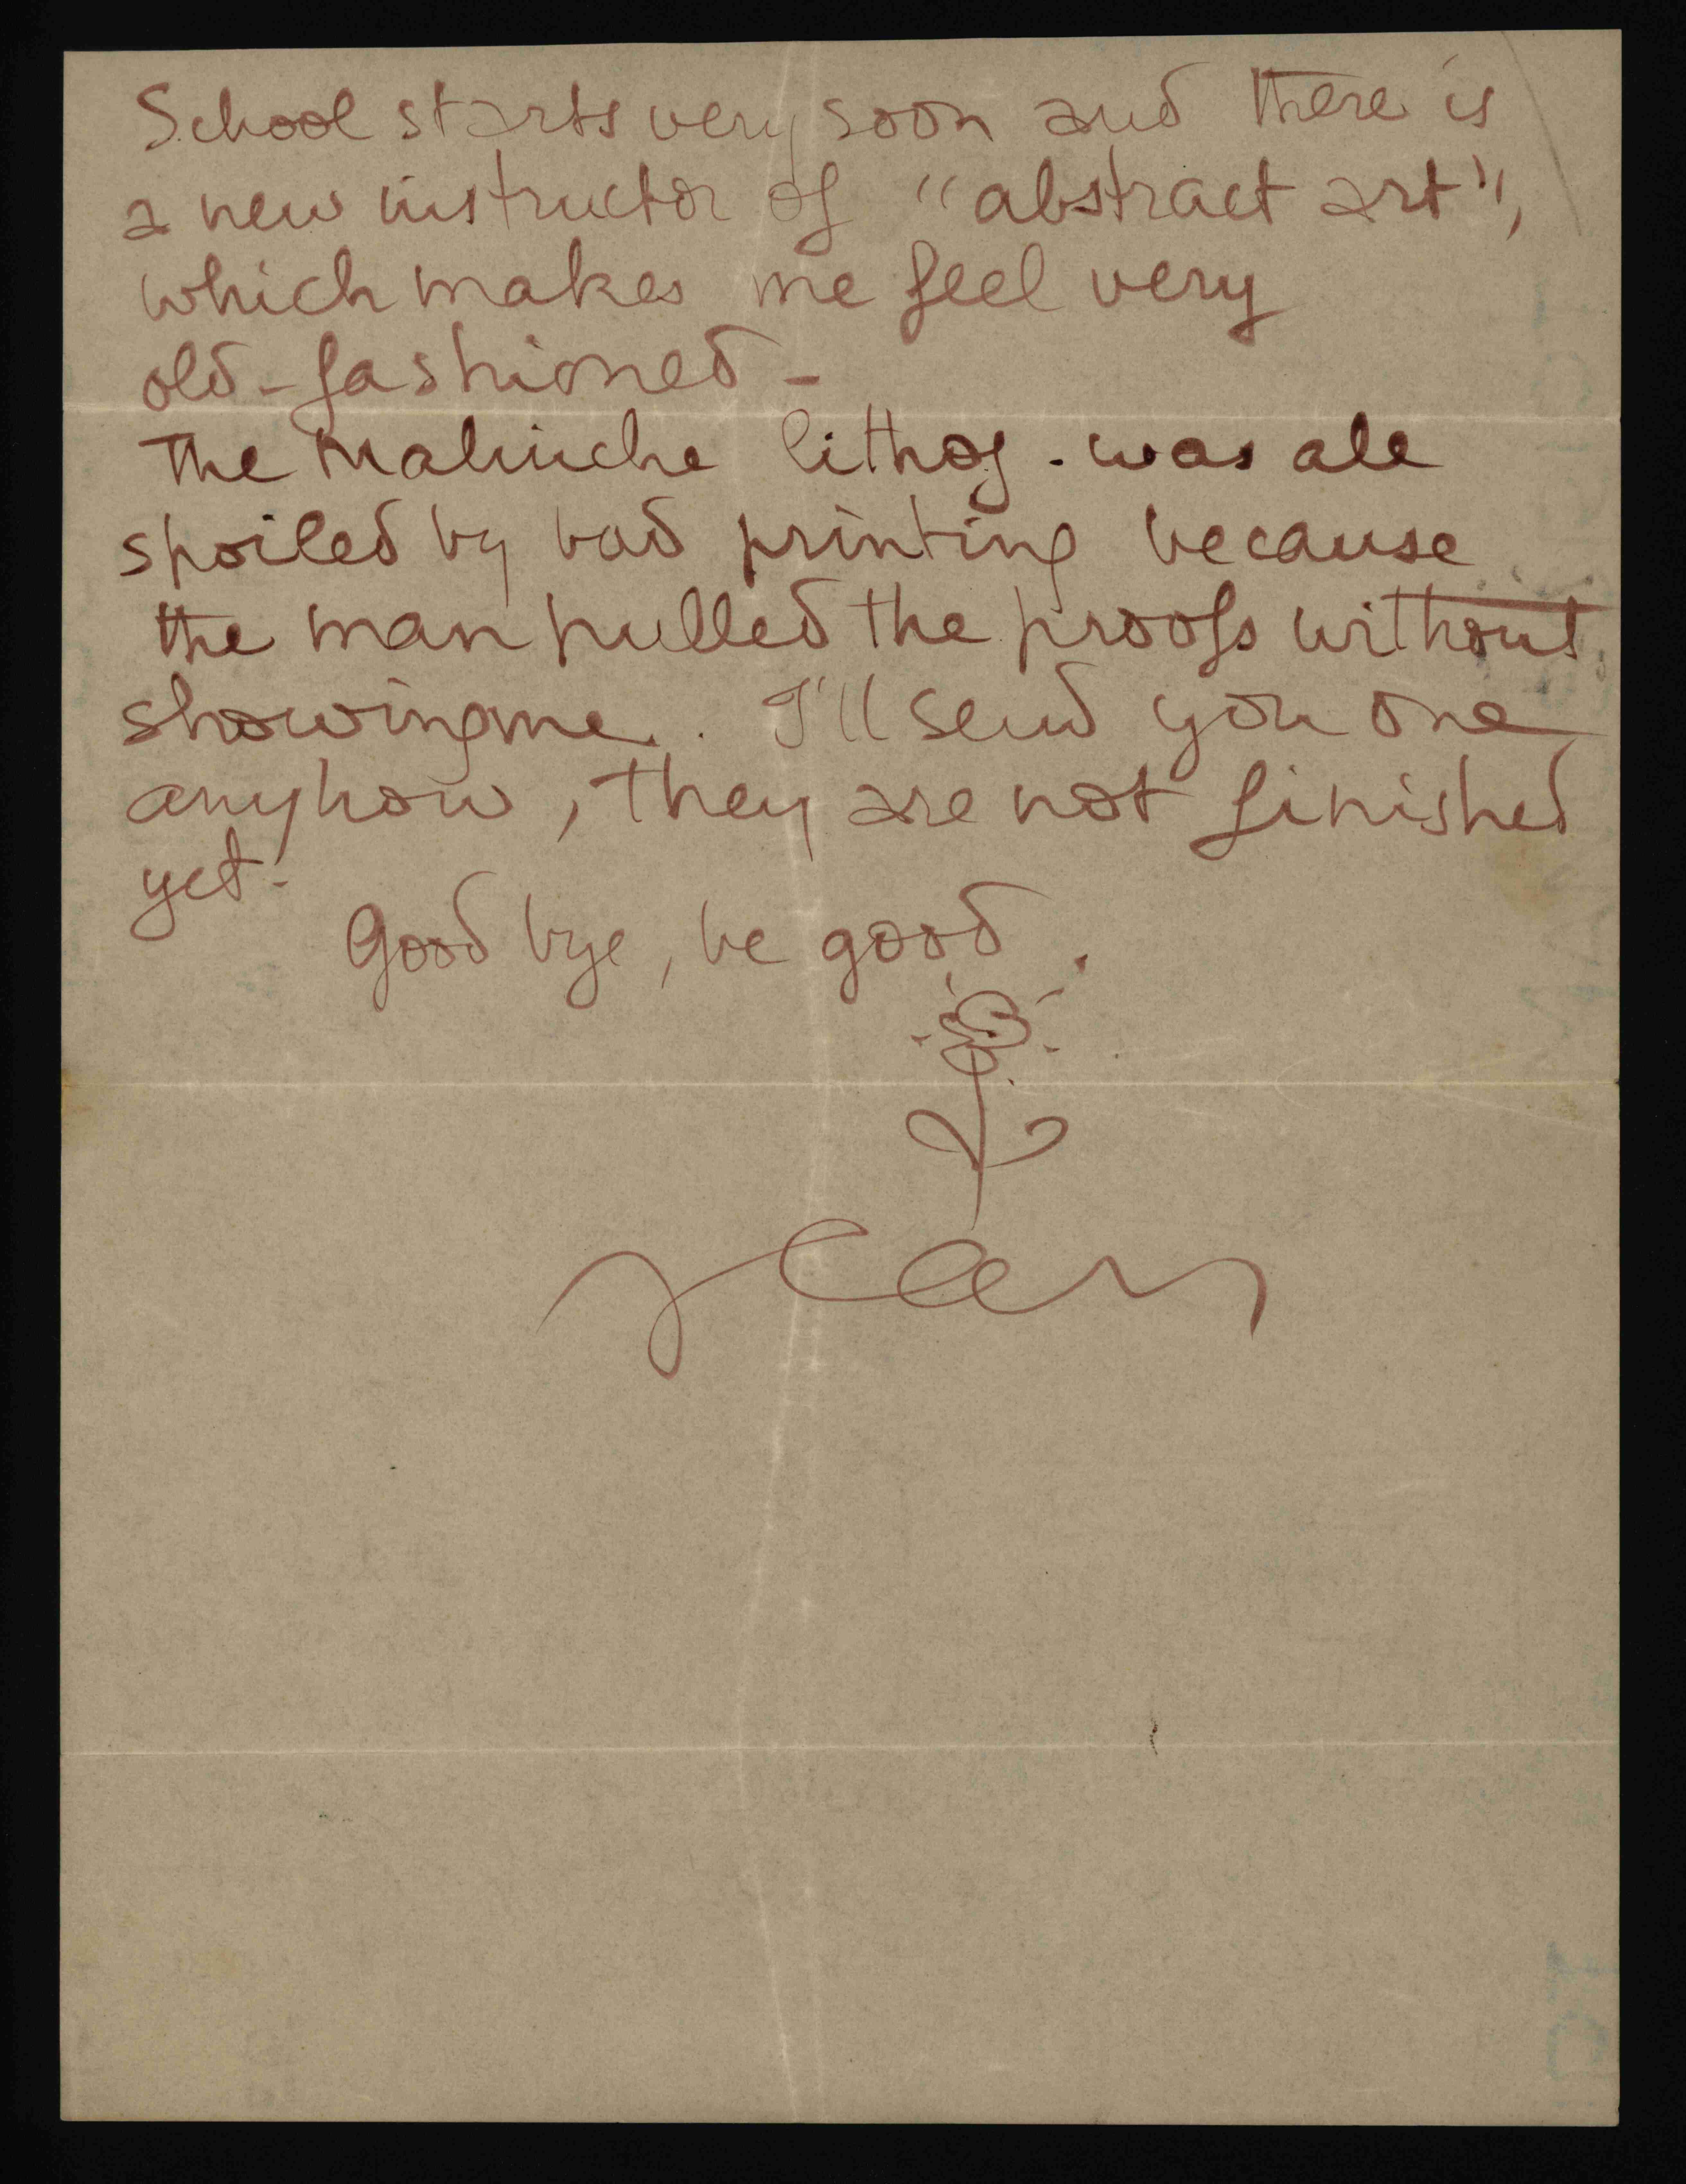 School starts very soon and there is
a new instructor of "abstract art",
which makes me feel very
old-fashioned -
The Malinche lithog. was all
spoiled by bad printing because
the man pulled the proofs without
showing me. I'll send you one
anyhow, they are not finished
yet -
Good bye, be good.
Jean